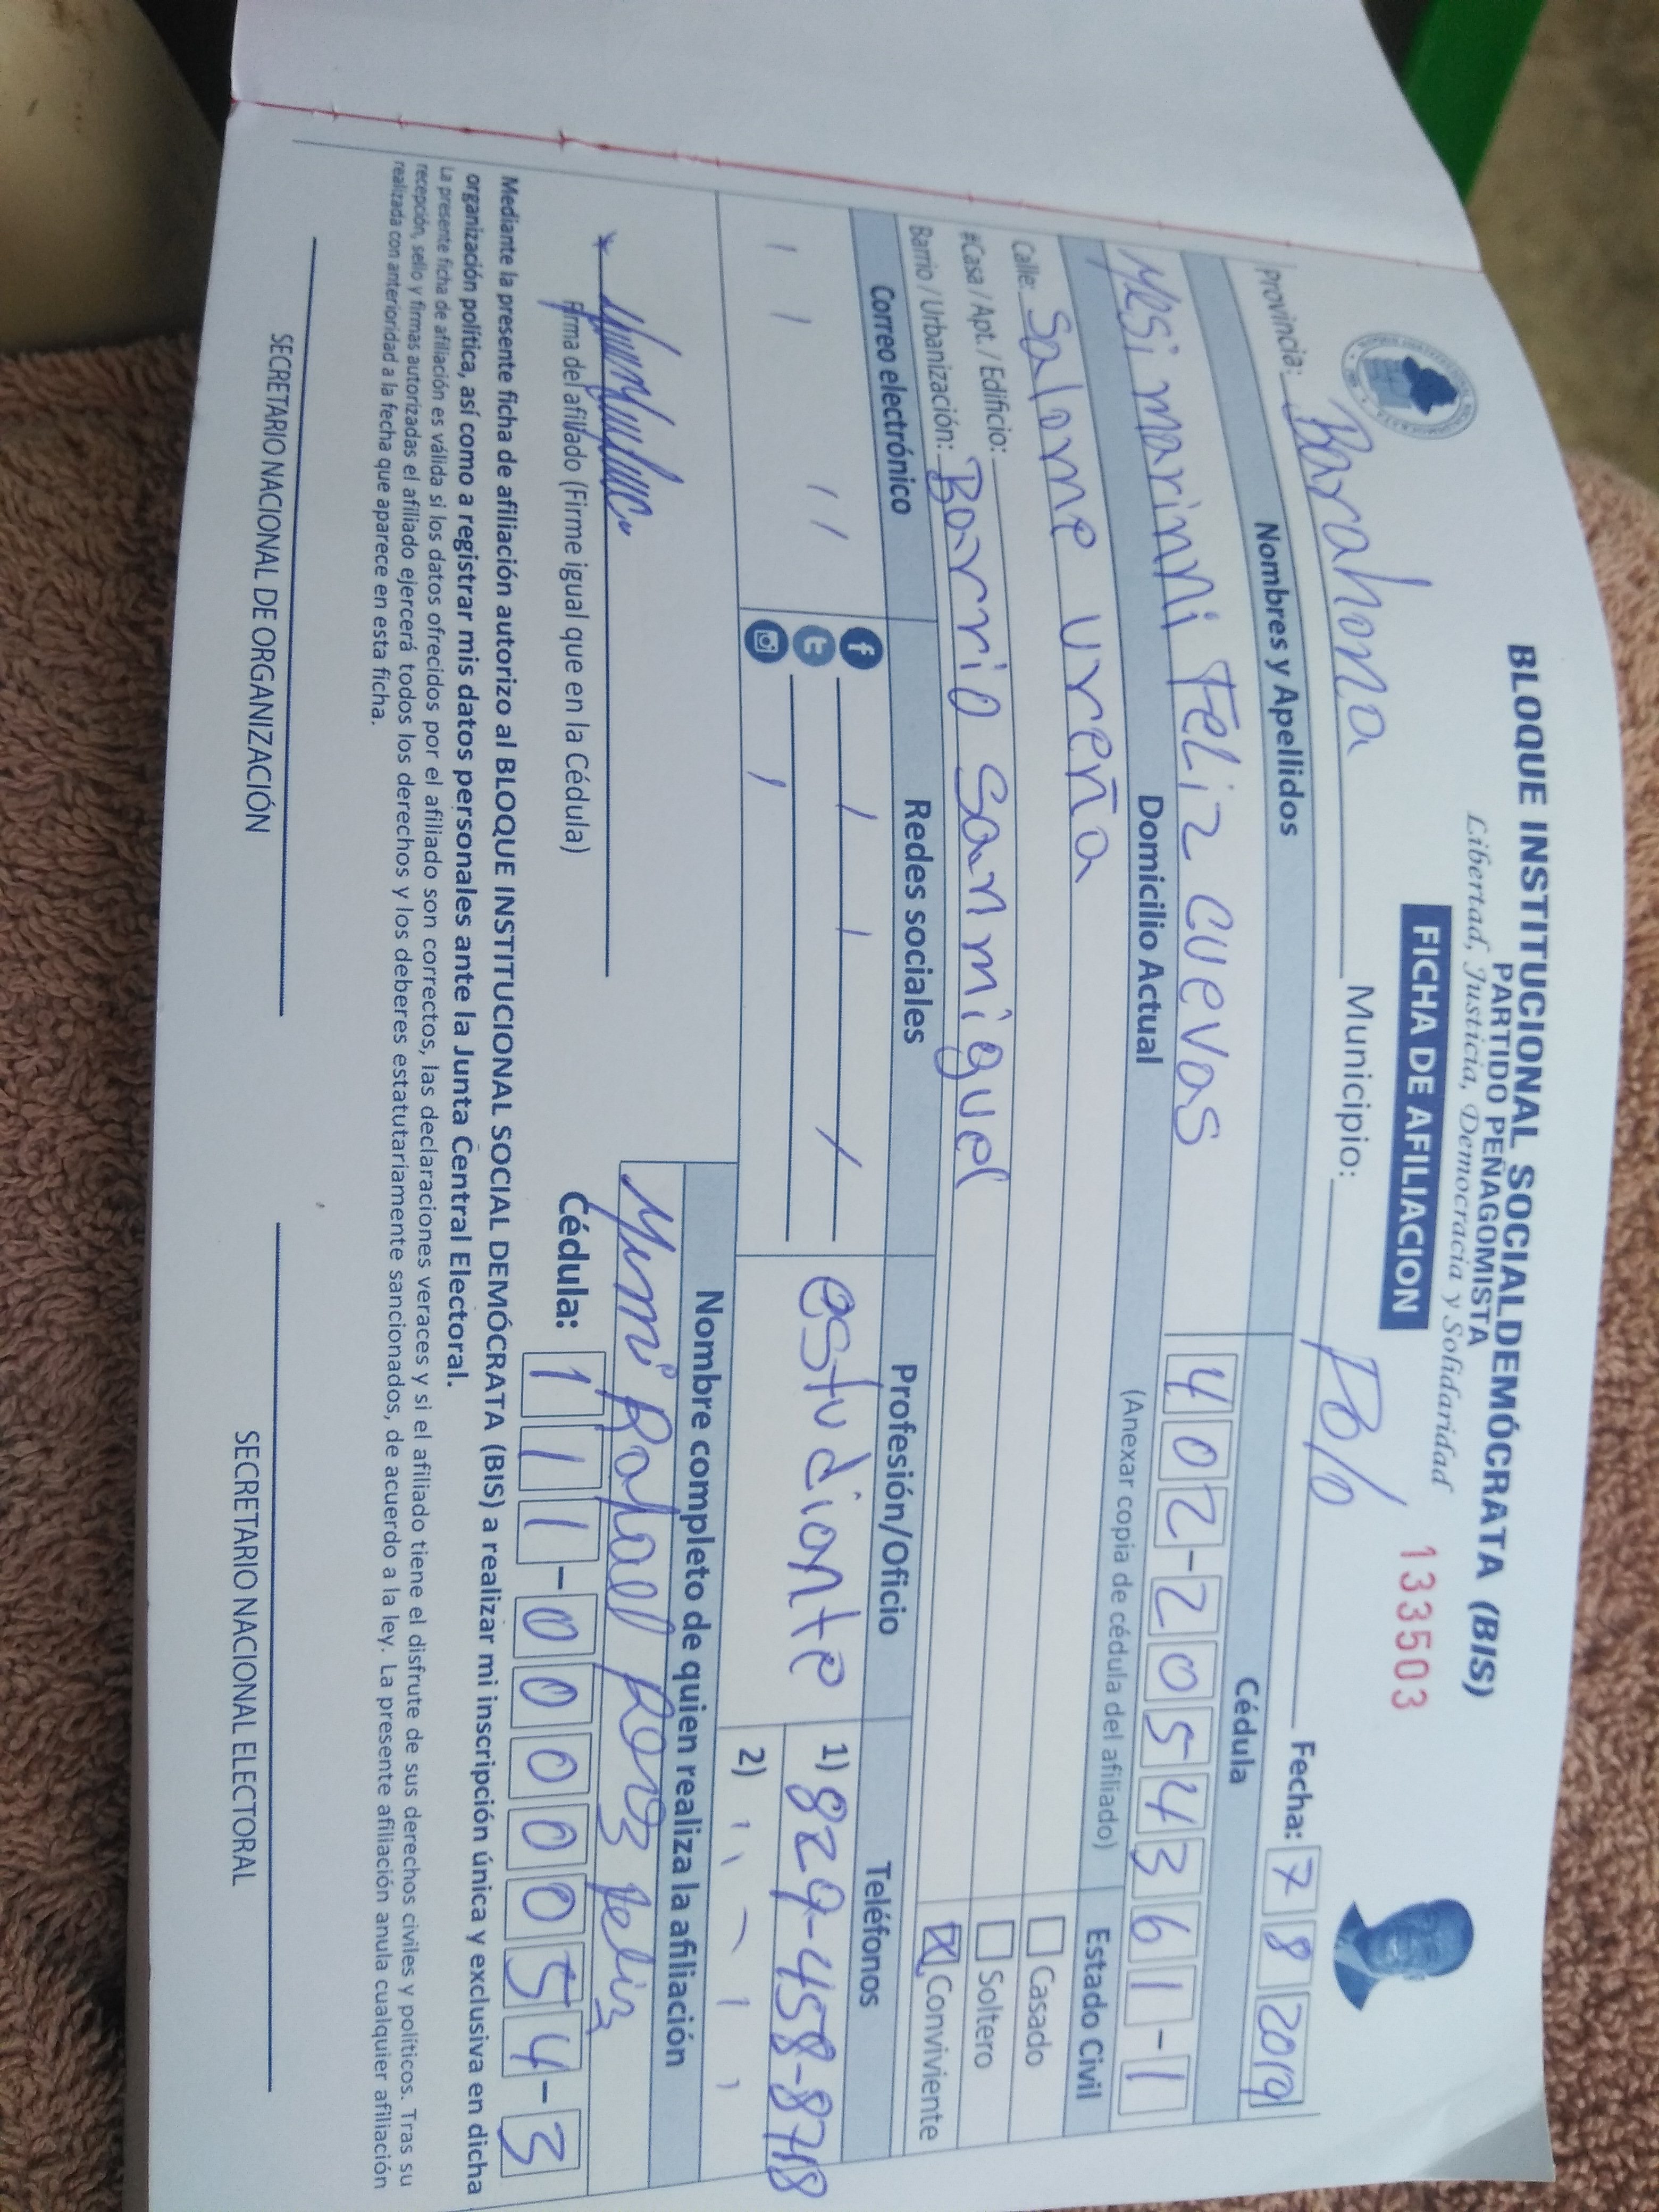 BLOQUE INSTITUCIONAL SOCIALDEMÓCRATA (BIS)
PARTIDO PEÑAGOMISTA
Libertad, Justicia, Democracia y Solidaridad
FICHA DE AFILIACION
133503
Provincia: Barahona Municipio: Polo Fecha: 7 8 2019
Nombres y Apellidos Cédula
Yesi marinni Feliz cuevas 402-2054361-1
Domicilio Actual (Anexar copia de cédula del afiliado) Estado Civil
Calle: Salome ureña Casado
#Casa / Apt. / Edificio: Soltero
Barrio / Urbanización: Barrio San miguel Conviviente
Correo electrónico Redes sociales Profesión/Oficio Teléfonos
estudiante 1) 829-458-8718
2)
Nombre completo de quien realiza la afiliación
Rafael Feliz
Firma del afiliado (Firme igual que en la Cédula) Cédula: 111-0000054-3
Mediante la presente ficha de afiliación autorizo al BLOQUE INSTITUCIONAL SOCIAL DEMÓCRATA (BIS) a realizar mi inscripción única y exclusiva en dicha
organización política, así como a registrar mis datos personales ante la Junta Central Electoral.
La presente ficha de afiliación es válida si los datos ofrecidos por el afiliado son correctos, las declaraciones veraces y si el afiliado tiene el disfrute de sus derechos civiles y políticos. Tras su
recepción, sello y firmas autorizadas el afiliado ejercerá todos los derechos y los deberes estatutariamente sancionados, de acuerdo a la ley. La presente afiliación anula cualquier afiliación
realizada con anterioridad a la fecha que aparece en esta ficha.
SECRETARIO NACIONAL DE ORGANIZACIÓN SECRETARIO NACIONAL ELECTORAL